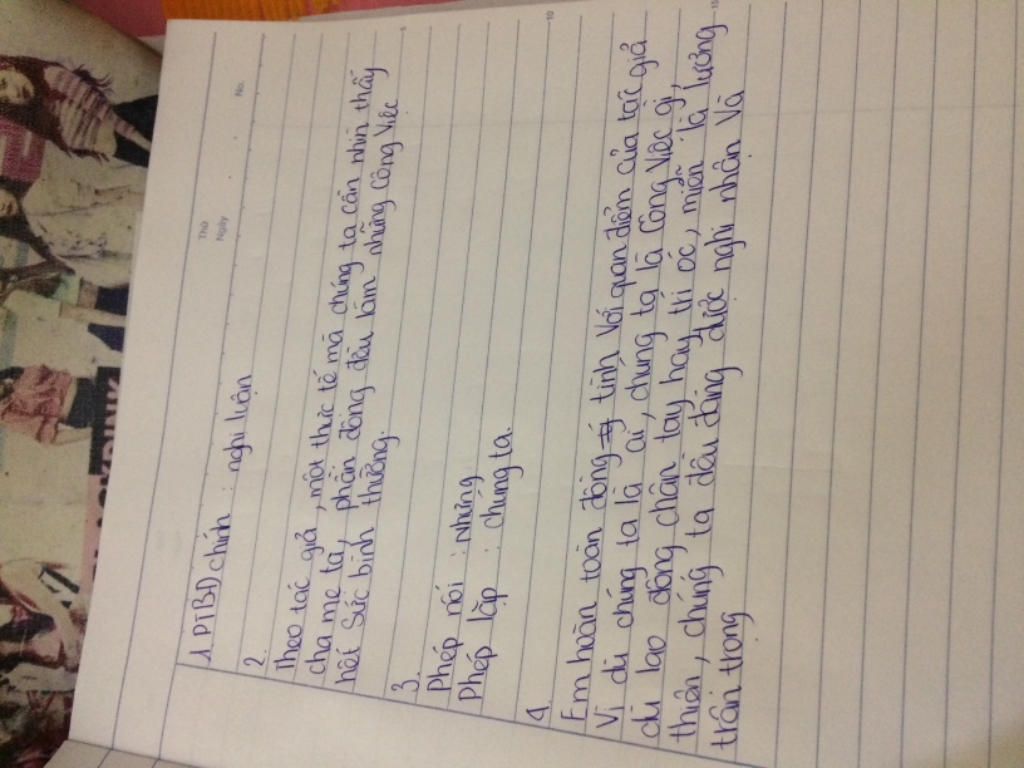 Thứ
Ngày
No.
1. PTBĐ chính : nghị luận
2.
Theo tác giả, một thực tế mà chúng ta cần nhìn thấy
cha mẹ ta, phần đông đều làm những công việc
hết sức bình thường.
3.
Phép nối : nhưng
Phép lặp : chúng ta.
4
Em hoàn toàn đồng tình với quan điểm của tác giả
Vì dù chúng ta là ai, chúng ta là công việc gì,
dù lao động chân tay hay trí óc, miễn là lương
thiện, chúng ta đều đáng được nghi nhận và
trân trọng
5
10
15